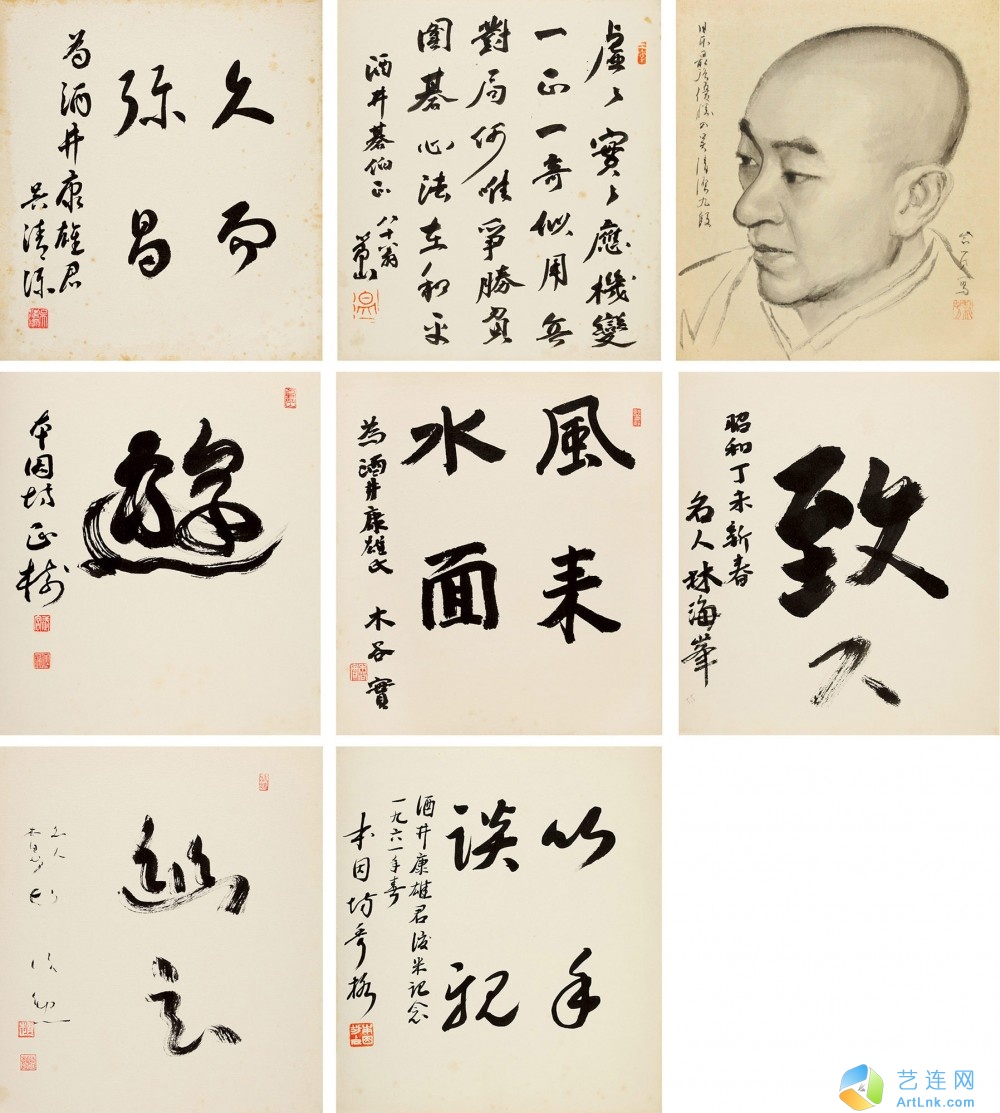 久而
弥昌
為酒井康雄君
吴清源
虚々實々應機變
一正一奇似用兵
對局何唯爭勝負
圍碁心法在和平
酒井碁伯正
八十翁
日本最高位優勝の吳清源九段
遊
本因坊正樹
風来
水面
為酒井康雄
木谷實
致人
昭和丁未新春
名人林海峯
以手
談親
酒井康雄君渡米記念
一九六一年春
本因坊秀格
艺连网
ArtLnk.com